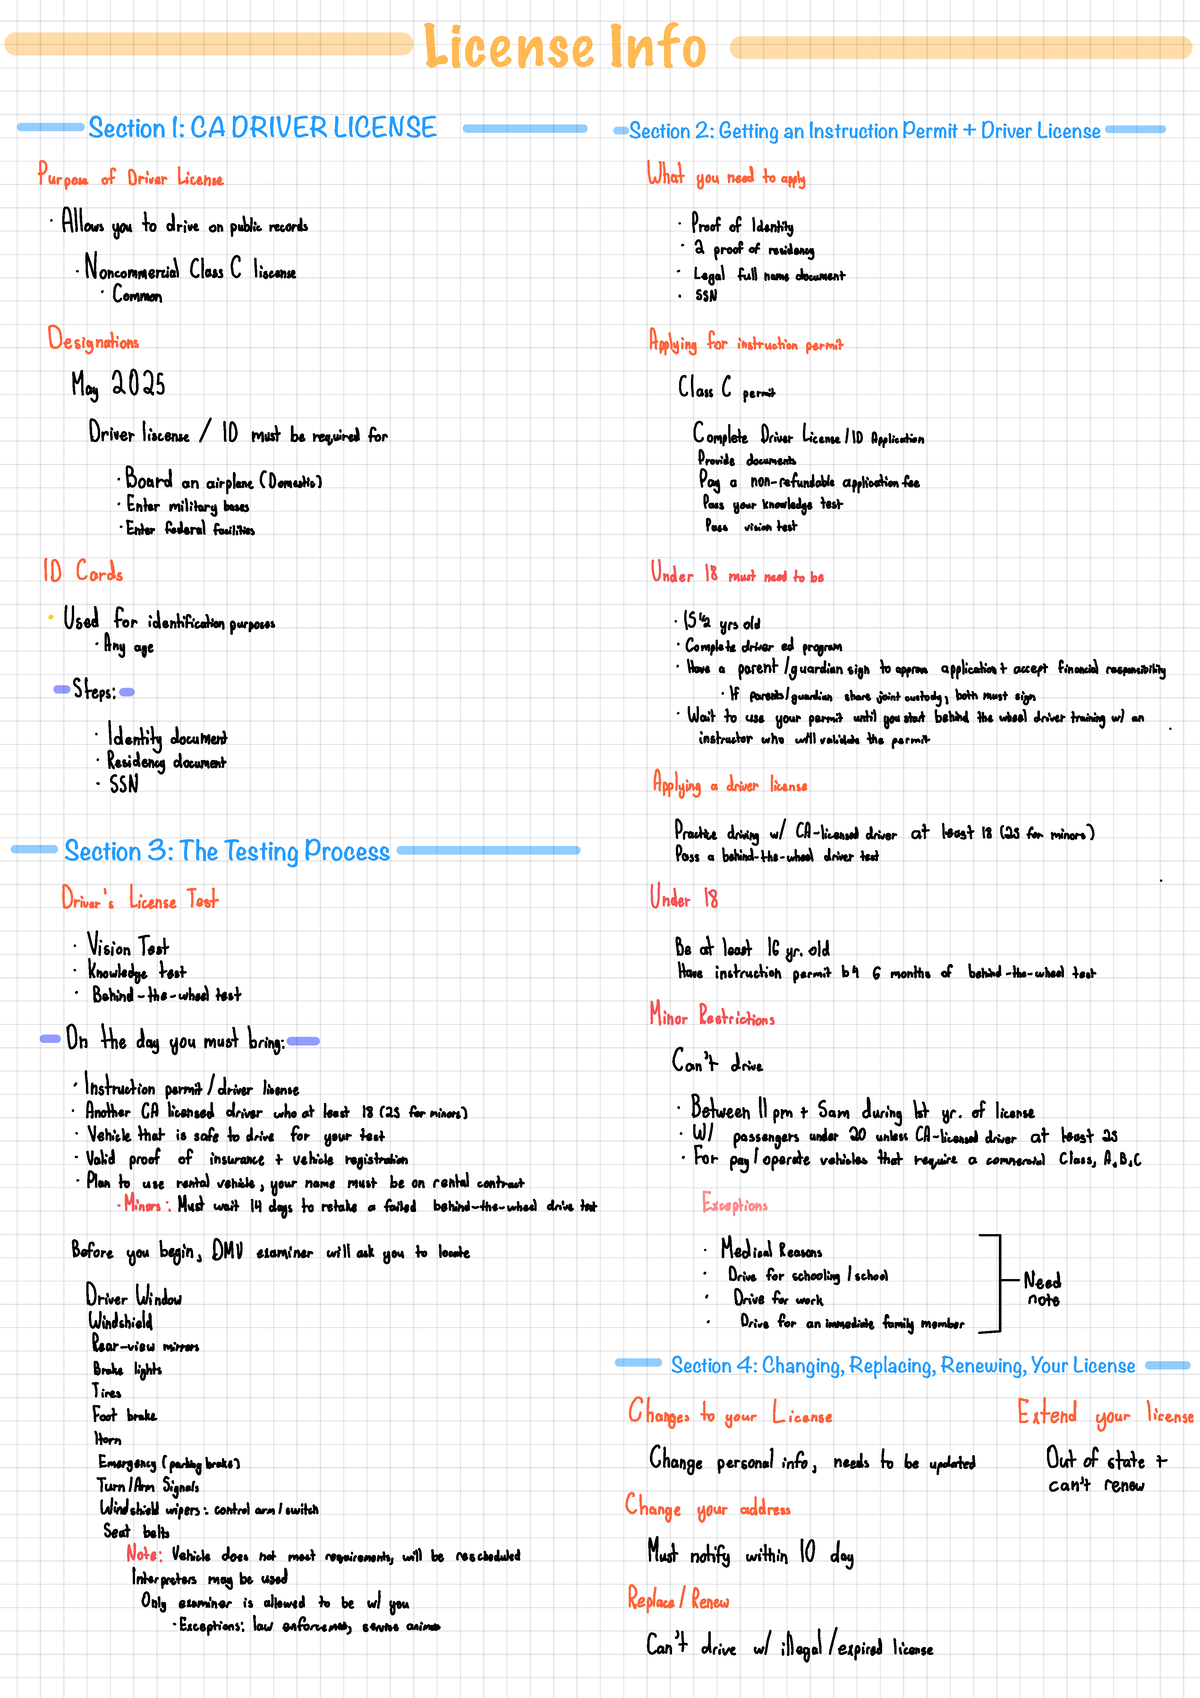 License Info
Section 1: CA DRIVER LICENSE
Purpose of Driver License
· Allows you to drive on public records
· Noncommercial Class C liscense
· Common
Designations
May 2025
Driver liscense / ID must be required for
· Board an airplane (Domestic)
· Enter military bases
· Enter federal facilities
ID Cards
· Used for identification purposes
· Any age
Steps:
· Identity document
· Residency document
· SSN
Section 2: Getting an Instruction Permit + Driver License
What you need to apply
· Proof of Identity
· 2 proof of residency
· Legal full name document
· SSN
Applying for instruction permit
Class C permit
Complete Driver License/ID Application
Provide documents
Pay a non-refundable application fee
Pass your knowledge test
Pass vision test
Under 18 must need to be
· 15 1/2 yrs old
· Complete driver ed program
· Have a parent/guardian sign to approve application + accept financial responsibility
· If parents/guardian share joint custody, both must sign
· Wait to use your permit until you start behind the wheel driver training w/ an
instructor who will validate the permit
Applying a driver license
Practice driving w/ CA-licensed driver at least 18 (25 for minors)
Pass a behind-the-wheel driver test
Under 18
Be at least 16 yr. old
Have instruction permit b4 6 months of behind-the-wheel test
Minor Restrictions
Can't drive
· Between 11 pm + 5am during 1st yr. of license
· W/ passengers under 20 unless CA-licensed driver at least 25
· For pay/operate vehicles that require a commercial Class, A,B,C
Exceptions
· Medical Reasons
· Drive for schooling/school
· Drive for work
· Drive for an immediate family member
Need
note
Section 3: The Testing Process
Driver's License Test
· Vision Test
· Knowledge test
· Behind-the-wheel test
On the day you must bring:
· Instruction permit/driver license
· Another CA licensed driver who at least 18 (25 for minors)
· Vehicle that is safe to drive for your test
· Valid proof of insurance + vehicle registration
· Plan to use rental vehicle, your name must be on rental contract
· Minors: Must wait 14 days to retake a failed behind-the-wheel drive test
Before you begin, DMV examiner will ask you to locate
Driver Window
Windshield
Rear-view mirrors
Brake lights
Tires
Foot brake
Horn
Emergency (parking brake)
Turn/Arm Signals
Windshield wipers: control arm/switch
Seat belts
Note: Vehicle does not meet requirements, will be rescheduled
Interpreters may be used
Only examiner is allowed to be w/ you
· Exceptions: law enforcement, service animals
Section 4: Changing, Replacing, Renewing, Your License
Changes to your License
Change personal info, needs to be updated
Change your address
Must notify within 10 day
Replace/Renew
Can't drive w/ illegal/expired license
Extend your license
Out of state +
can't renew